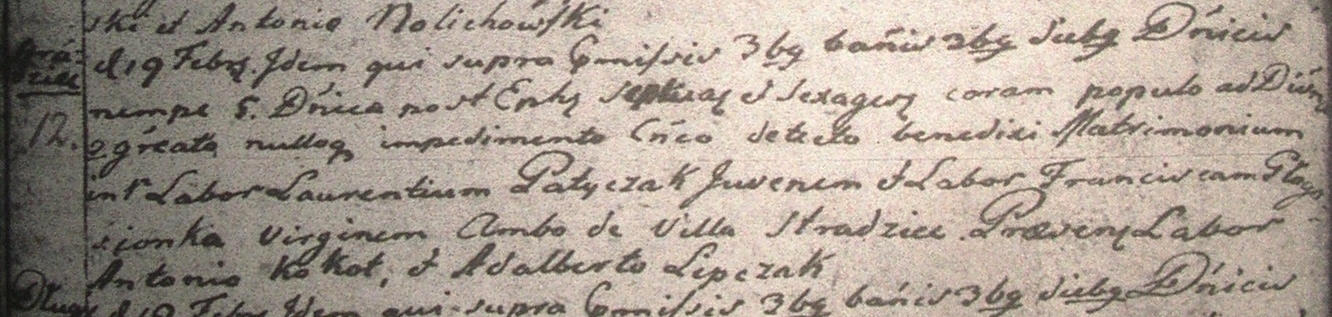 ski et Antonio Nolichowski
d 19 Febrʒ. Idem qui supra pmissis 3bʒ bañis 3bʒ diebʒ Dñicis
nempe 5. Dñica post Ephʒ Septuaʒ et Sexagesʒ coram populo ad Divin
ɔgreato nulloqʒ impedimento Cñco detecto benedixi Matrimonium
intʳ Labor Laurentium Patyczak Juvenem et Labor Franciscam
sionka Virginem Ambo de Villa Stradzice. Præsenʒ Labor
Antonio Kokot, et Adalberto Lepczak
12.
d 19 Febrʒ Idem qui supra pmissis 3bʒ bañis 3bʒ diebʒ Dñicis